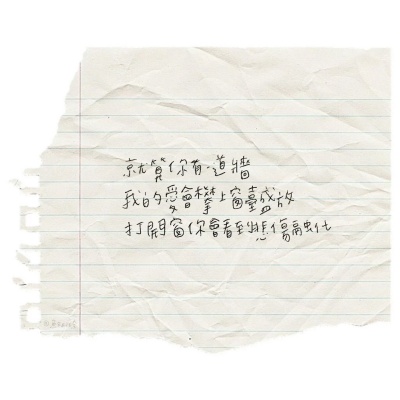 就算你有一道牆
我的愛會攀上窗臺盛放
打開窗你會看到悲傷融化